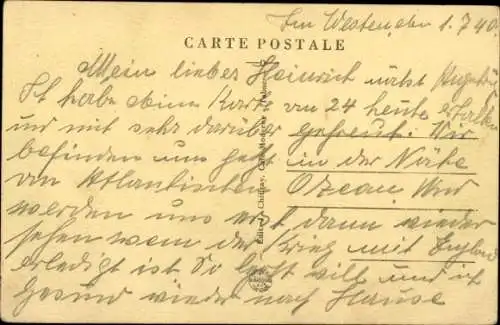 Im Westen, den 1.7.40.
CARTE POSTALE
Mein liebes Heinrich nebst
Ich habe deine Karte von 24 heute erhalten
und mit sehr darüber gefreut. Wir
befinden uns jetzt in der Nähe
von Atlantischen Ozean. Und
werden uns erst dann wieder
sehen wenn der Krieg mit England
erledigt ist. So Gott will und ich
Gesund wieder nach Hause